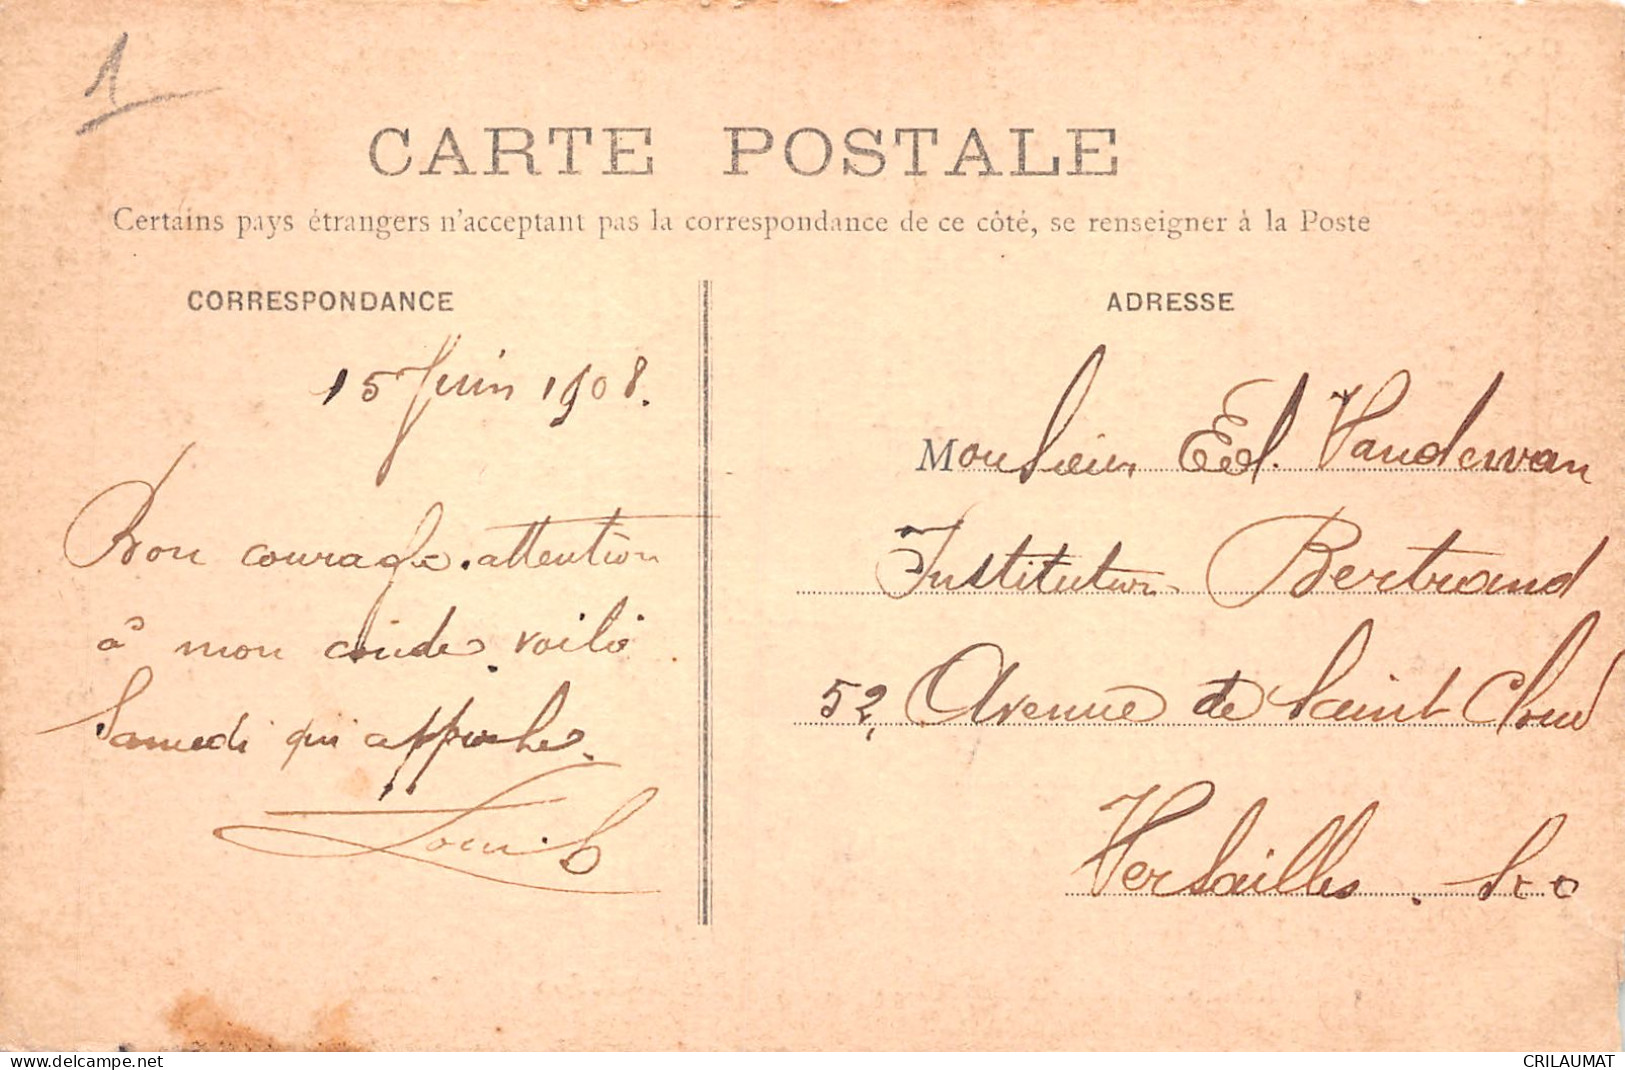 1
CARTE POSTALE
Certains pays étrangers n'acceptant pas la correspondance de ce côté, se renseigner à la Poste
CORRESPONDANCE
15 Juin 1908.
Bon courage. attention
à mon voilà
Samedi qui approche.
Louis
ADRESSE
Monsieur Ed. Vandewan
Institution Bertrand
52, Avenue de Saint Cloud
Versailles. S et O
www.delcampe.net
CRILAUMAT